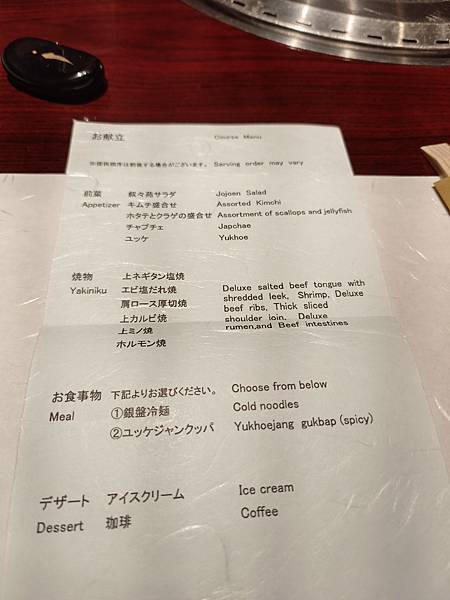 お献立 Course Menu
※提供順序は前後する場合がございます。 Serving order may vary
前菜 叙々苑サラダ Jojoen Salad
Appetizer キムチ盛合せ Assorted Kimchi
ホタテとクラゲの盛合せ Assortment of scallops and jellyfish
チャプチェ Japchae
ユッケ Yukhoe
焼物 上ネギタン塩焼 Deluxe salted beef tongue with
Yakiniku エビ塩だれ焼 shredded leek, Shrimp, Deluxe
肩ロース厚切焼 beef ribs, Thick sliced
上カルビ焼 shoulder loin, Deluxe
上ミノ焼 rumen,and Beef intestines
ホルモン焼
お食事物 下記よりお選びください。 Choose from below
Meal ①銀盤冷麺 Cold noodles
②ユッケジャンクッパ Yukhoejang gukbap (spicy)
デザート アイスクリーム Ice cream
Dessert 珈琲 Coffee